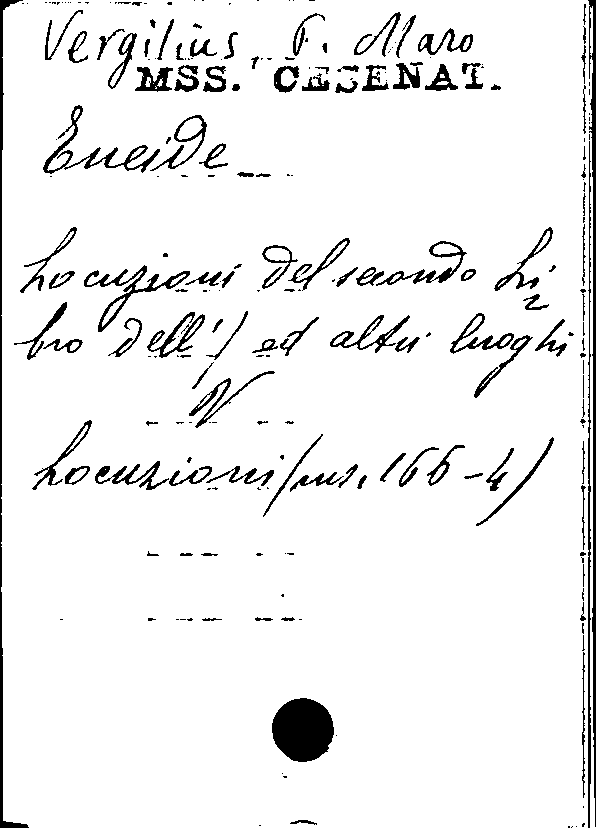 Vergilius, P. Maro
MSS. CESENAT.
Eneide
Locuzioni del secondo Li
bro dell'/ ed altri luoghi
V
Locuzioni (ms. 166-4)